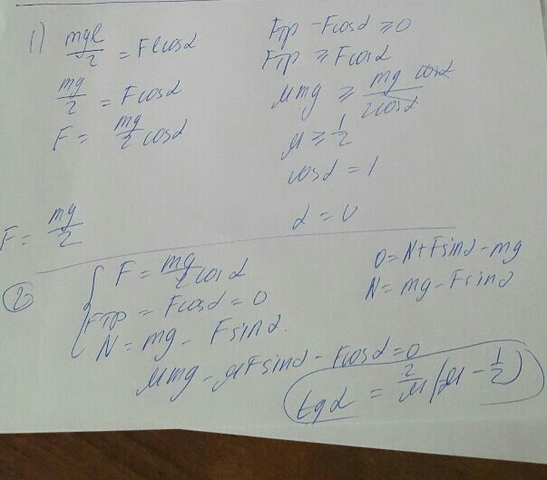 1) mgl/2 = Flcosα
mg/2 = Fcosα
F = mg/2cosα
F = mg/2
Fтр - Fcosα ≥ 0
Fтр ≥ Fcosα
μmg ≥ mg cosα/2cosα
μ ≥ 1/2
cosα = 1
α = 0
2) F = mg/2cosα
Fтр = Fcosα = 0
N = mg - Fsinα.
0 = N + Fsinα - mg
N = mg - Fsinα
μmg - μFsinα - Fcosα = 0
tgα = 2/μ(μ - 1/2)